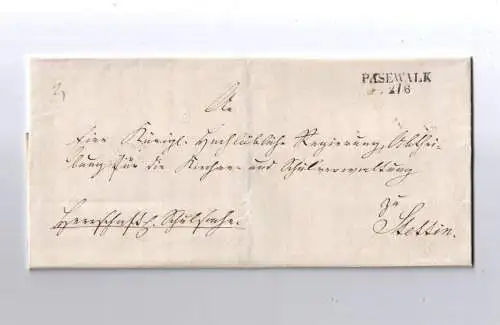 PASEWALK
2/6
An
Eine Königl. Hochlöbliche Regierung, Abthei-
lung für die Kirchen- und Schulverwaltung
zu
Herrschaftl. Schulsache.
Stettin.